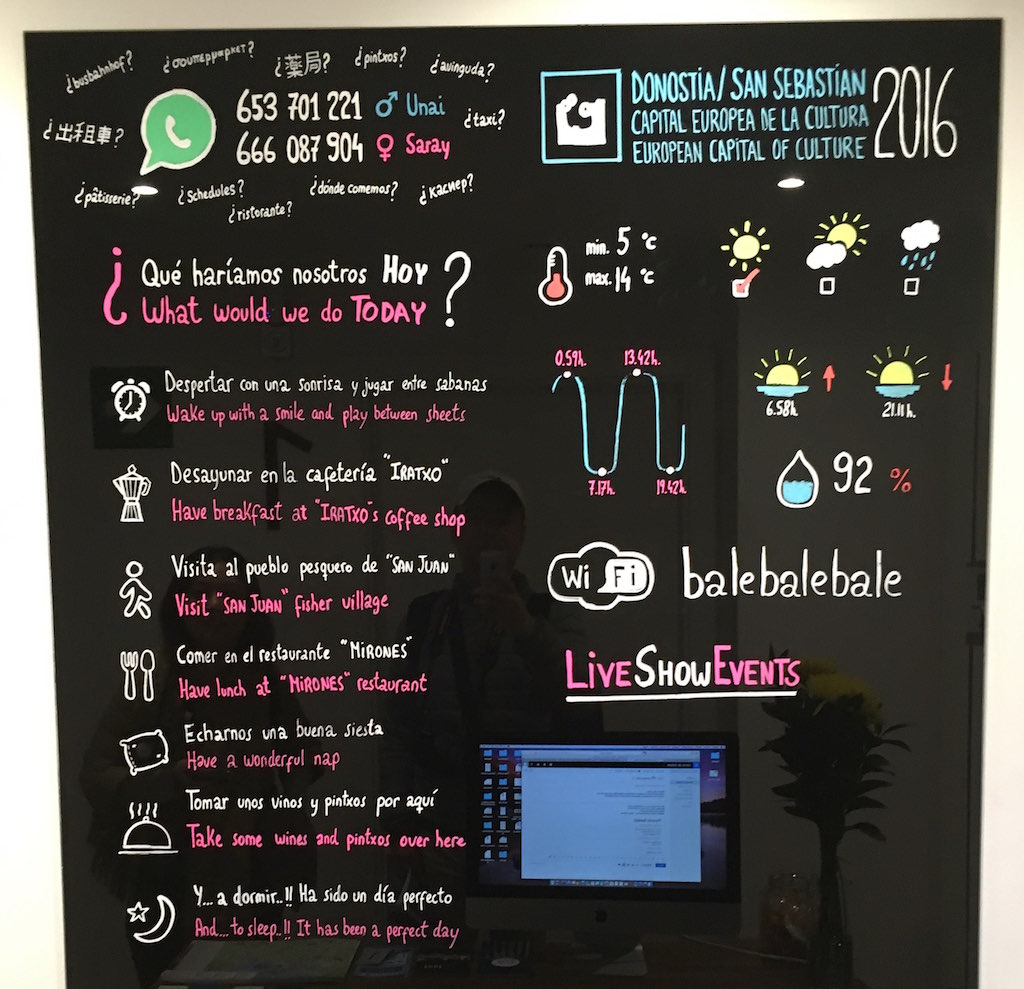 ¿busbahnhof?
¿σουπερμαρκετ?
¿薬局?
¿pintxos?
¿avinguda?
¿出租車?
653 701 221 ♂ Unai
¿taxi?
666 087 904 ♀ Saray
¿pâtisserie?
¿Schedules?
¿ristorante?
¿dónde comemos?
¿каснер?
¿Qué haríamos nosotros HOY
What would we do TODAY?
Despertar con una sonrisa y jugar entre sabanas
Wake up with a smile and play between sheets
Desayunar en la cafetería "IRATXO"
Have breakfast at "IRATXO"s coffee shop
Visita al pueblo pesquero de "SAN JUAN"
Visit "SAN JUAN" fisher village
Comer en el restaurante "MIRONES"
Have lunch at "MIRONES" restaurant
Echarnos una buena siesta
Have a wonderful nap
Tomar unos vinos y pintxos por aquí
Take some wines and pintxos over here
Y... a dormir..!! Ha sido un día perfecto
And...to sleep..!! It has been a perfect day
DONOSTIA/SAN SEBASTIAN
CAPITAL EUROPEA DE LA CULTURA
EUROPEAN CAPITAL OF CULTURE
2016
min. 5 °C
max. 14 °C
0.59h. 13.42h.
7.17h. 19.42h.
6.58h. 21.11h.
92 %
Wi Fi balebalebale
LIVESHOWEVENTS